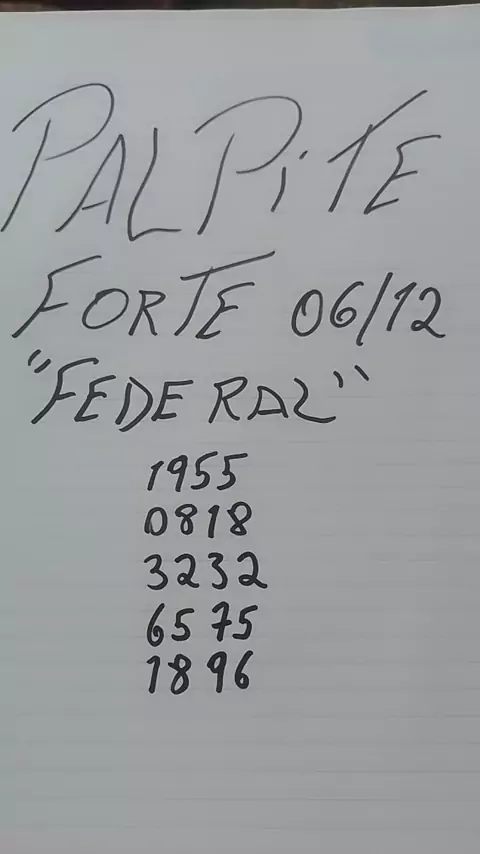 PALPiTE
FORTE 06/12
"FEDERAL"
1955
0818
3232
6575
1896